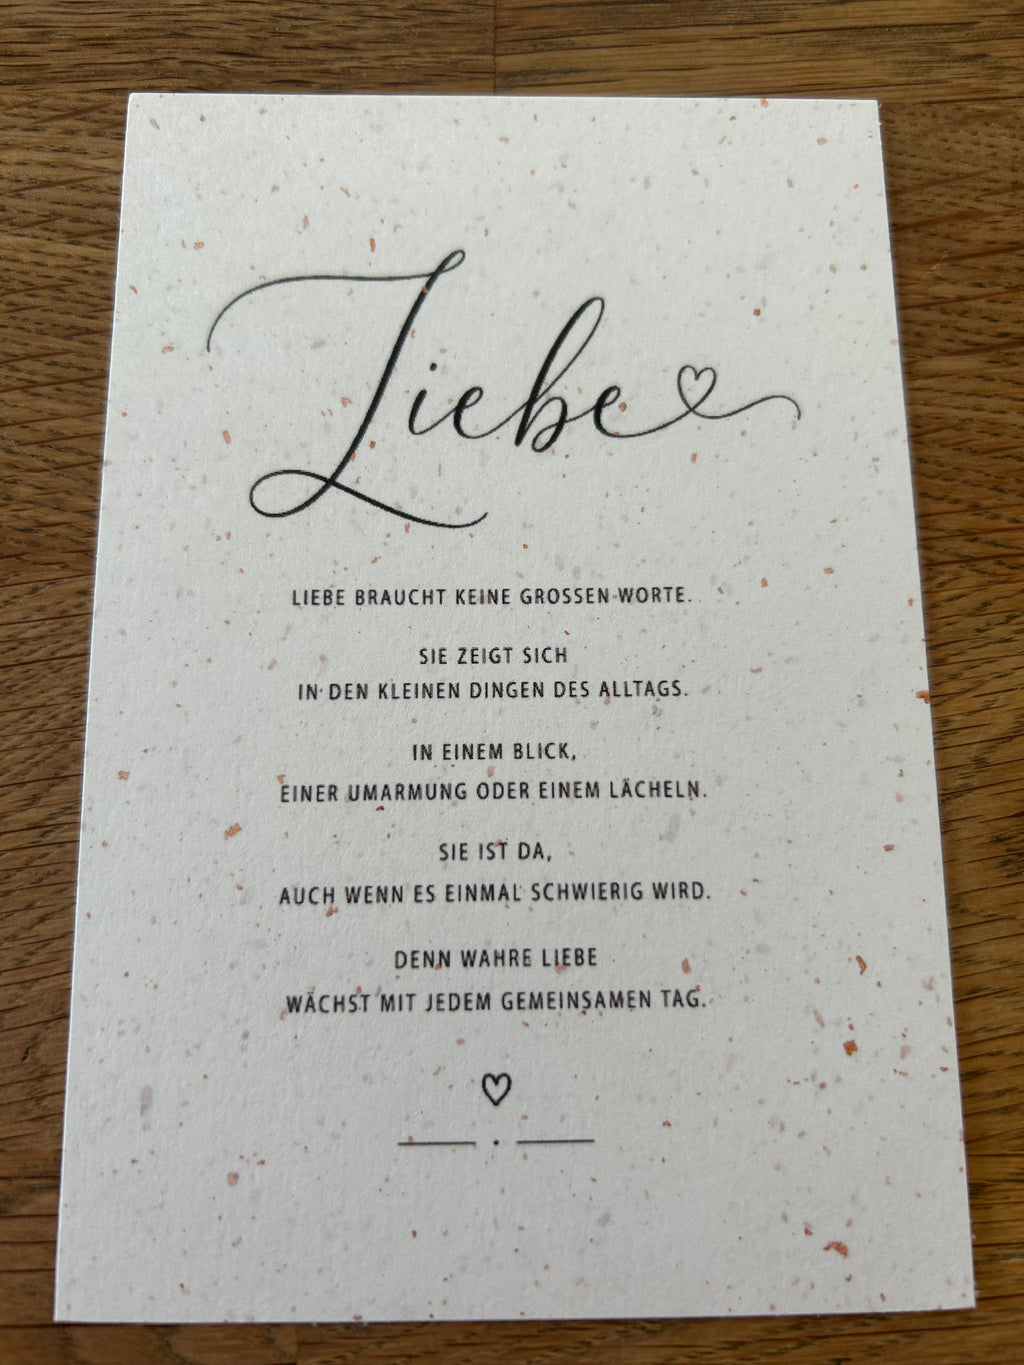 Liebe
LIEBE BRAUCHT KEINE GROSSEN WORTE.
SIE ZEIGT SICH
IN DEN KLEINEN DINGEN DES ALLTAGS.
IN EINEM BLICK,
EINER UMARMUNG ODER EINEM LÄCHELN.
SIE IST DA,
AUCH WENN ES EINMAL SCHWIERIG WIRD.
DENN WAHRE LIEBE
WÄCHST MIT JEDEM GEMEINSAMEN TAG.